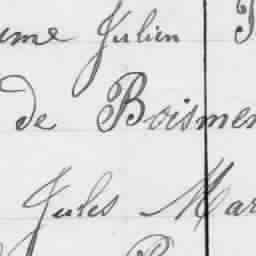 ume Julien
de Boismen
Jules Mar